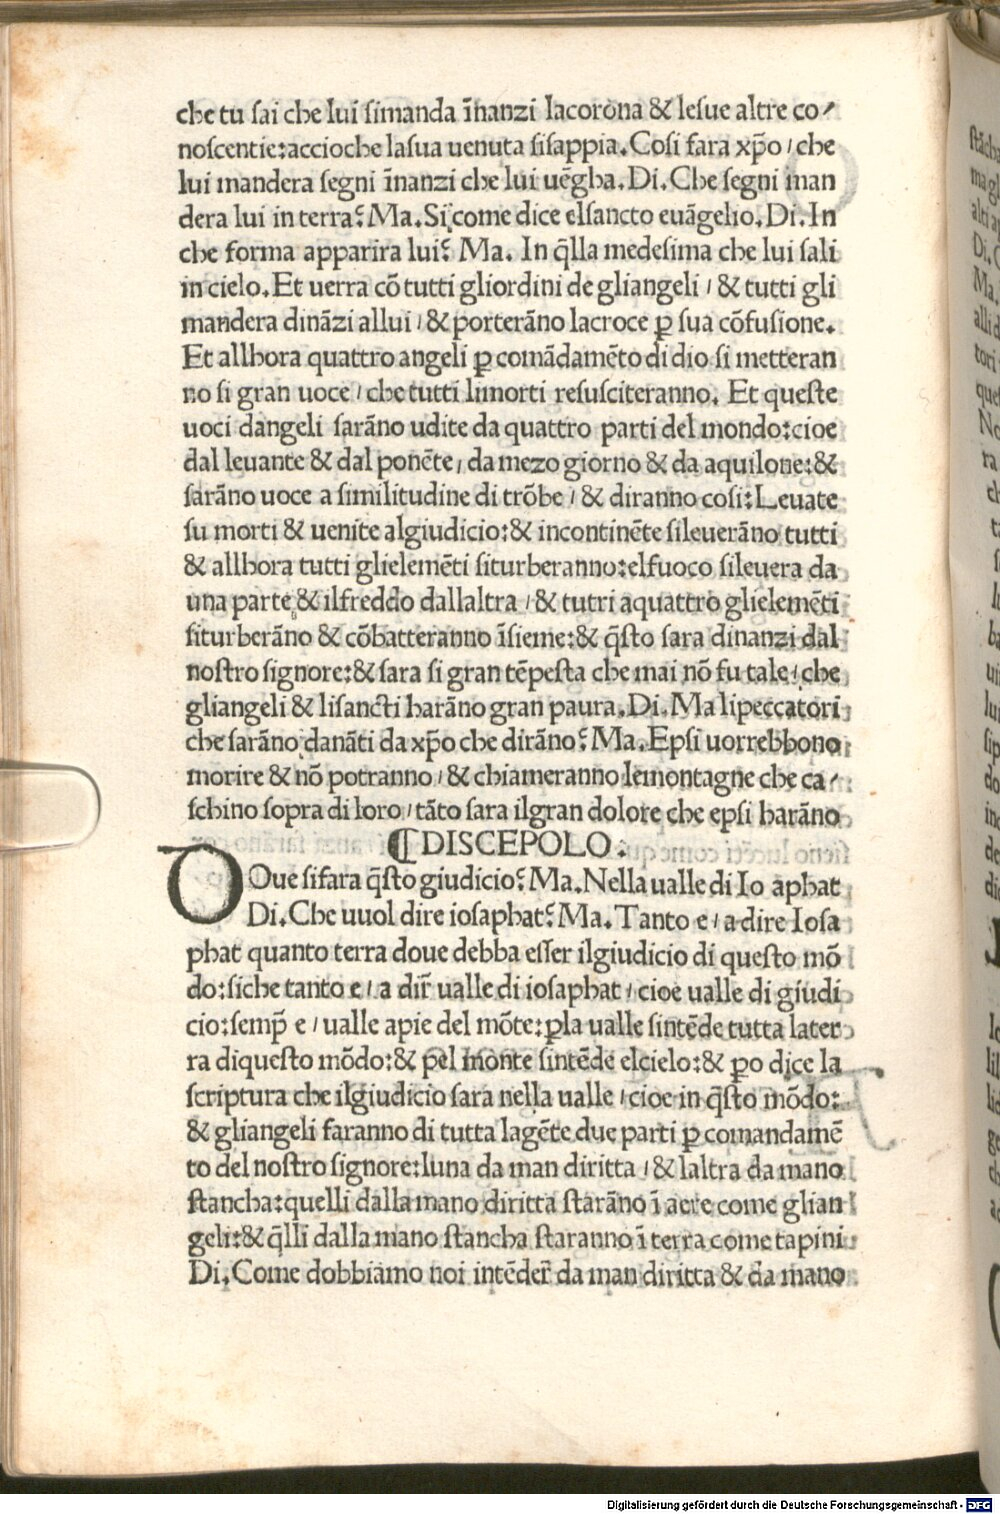 che tu sai che lui simanda īnanzi lacorona & lesue altre co/
noscentie:accioche lasua uenuta sisappia.Cosi fara xp̄o/che
lui mandera segni īnanzi che lui uēgha.Di.Che segni man
dera lui in terra? Ma.Sicome dice elsancto euāgelio.Di.In
che forma apparira lui? Ma. In q̄lla medesima che lui sali
in cielo.Et uerra cō tutti gliordini de gliangeli/& tutti gli
mandera dināzi allui/& porterāno lacroce ꝑ sua cōfusione.
Et allhora quattro angeli ꝑ comādamēto di dio si metteran
no si gran uoce/che tutti limorti resusciteranno. Et queste
uoci dangeli sarāno udite da quattro parti del mondo:cioe
dal leuante & dal ponēte/da mezo giorno & da aquilone:&
sarāno uoce a similitudine di trōbe/& diranno cosi:Leuate
su morti & uenite algiudicio:& incontinēte sileuerāno tutti
& allhora tutti glielemēti siturberanno:elfuoco sileuera da
una parte & ilfreddo dallaltra/& tutri aquattro glielemēti
siturberāno & cōbatteranno īsieme:& q̄sto sara dinanzi dal
nostro signore:& sara si gran tēpesta che mai nō fu tale/che
gliangeli & lisancti harāno gran paura.Di.Ma lipeccatori
che sarāno danāti da xp̄o che dirāno? Ma.Epsi uorrebbono
morire & nō potranno/& chiameranno lemontagne che ca/
schino sopra di loro/tāto sara ilgran dolore che epsi harāno
¶DISCEPOLO.
DOue sifara q̄sto giudicio? Ma.Nella ualle di Io aphat
Di.Che uuol dire iosaphat? Ma.Tanto e/a dire Iosa
phat quanto terra doue debba esser ilgiudicio di questo mō
do:siche tanto e/a dir̄ ualle di iosaphat/cioe ualle di giudi
cio:semp̄ e/ualle apie del mōte:ꝑla ualle sintēde tutta later
ra diquesto mōdo:& pel monte sintēde elcielo:& ꝑo dice la
scriptura che ilgiudicio sara nella ualle/cioe in q̄sto mōdo:
& gliangeli faranno di tutta lagēte due parti ꝑ comandamē
to del nostro signore:luna da man diritta/& laltra da mano
stancha:quelli dalla mano diritta starāno ī aere come glian
geli:& q̄lli dalla mano stancha staranno ī terra come tapini
Di.Come dobbiamo noi intēder̄ da man diritta & da mano
Digitalisierung gefördert durch die Deutsche Forschungsgemeinschaft - DFG